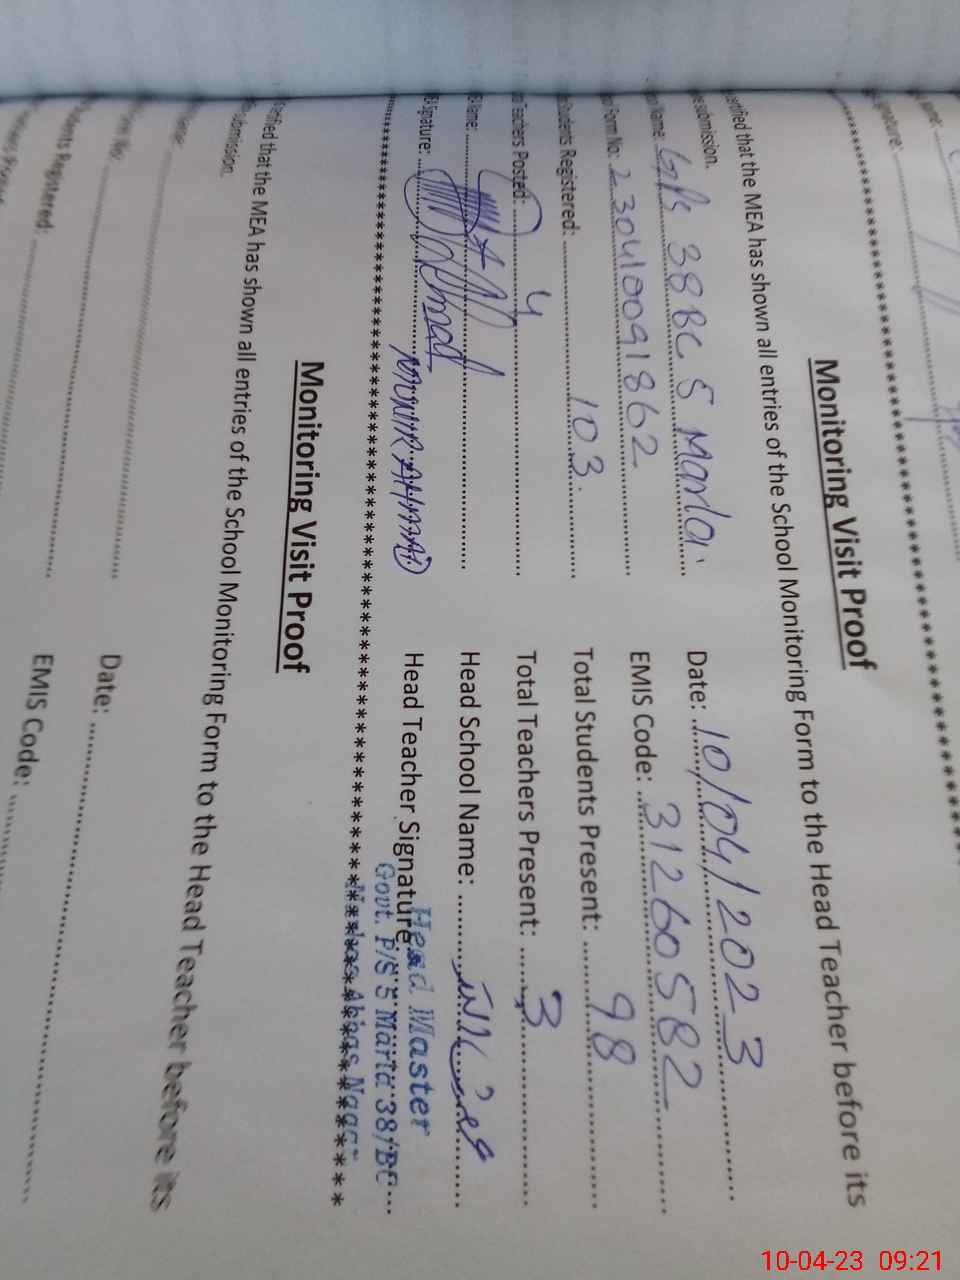 Monitoring Visit Proof
certified that the MEA has shown all entries of the School Monitoring Form to the Head Teacher before its
submission.
Name: G/Ps 38BC 5 Marla. Date: 10/04/2023
Form No: 230410091862 EMIS Code: 31260582
Students Registered: 103. Total Students Present: 98
Teachers Posted: 4 Total Teachers Present: 3
Name: Head School Name:
Signature: MUNIR AHMAD Head Teacher Signature
Head Master
Govt. P/S 5 Marla 38/BC
Abbas Nagar
Monitoring Visit Proof
certified that the MEA has shown all entries of the School Monitoring Form to the Head Teacher before its
submission.
Date:
No:
EMIS Code:
Students Registered:
10-04-23 09:21